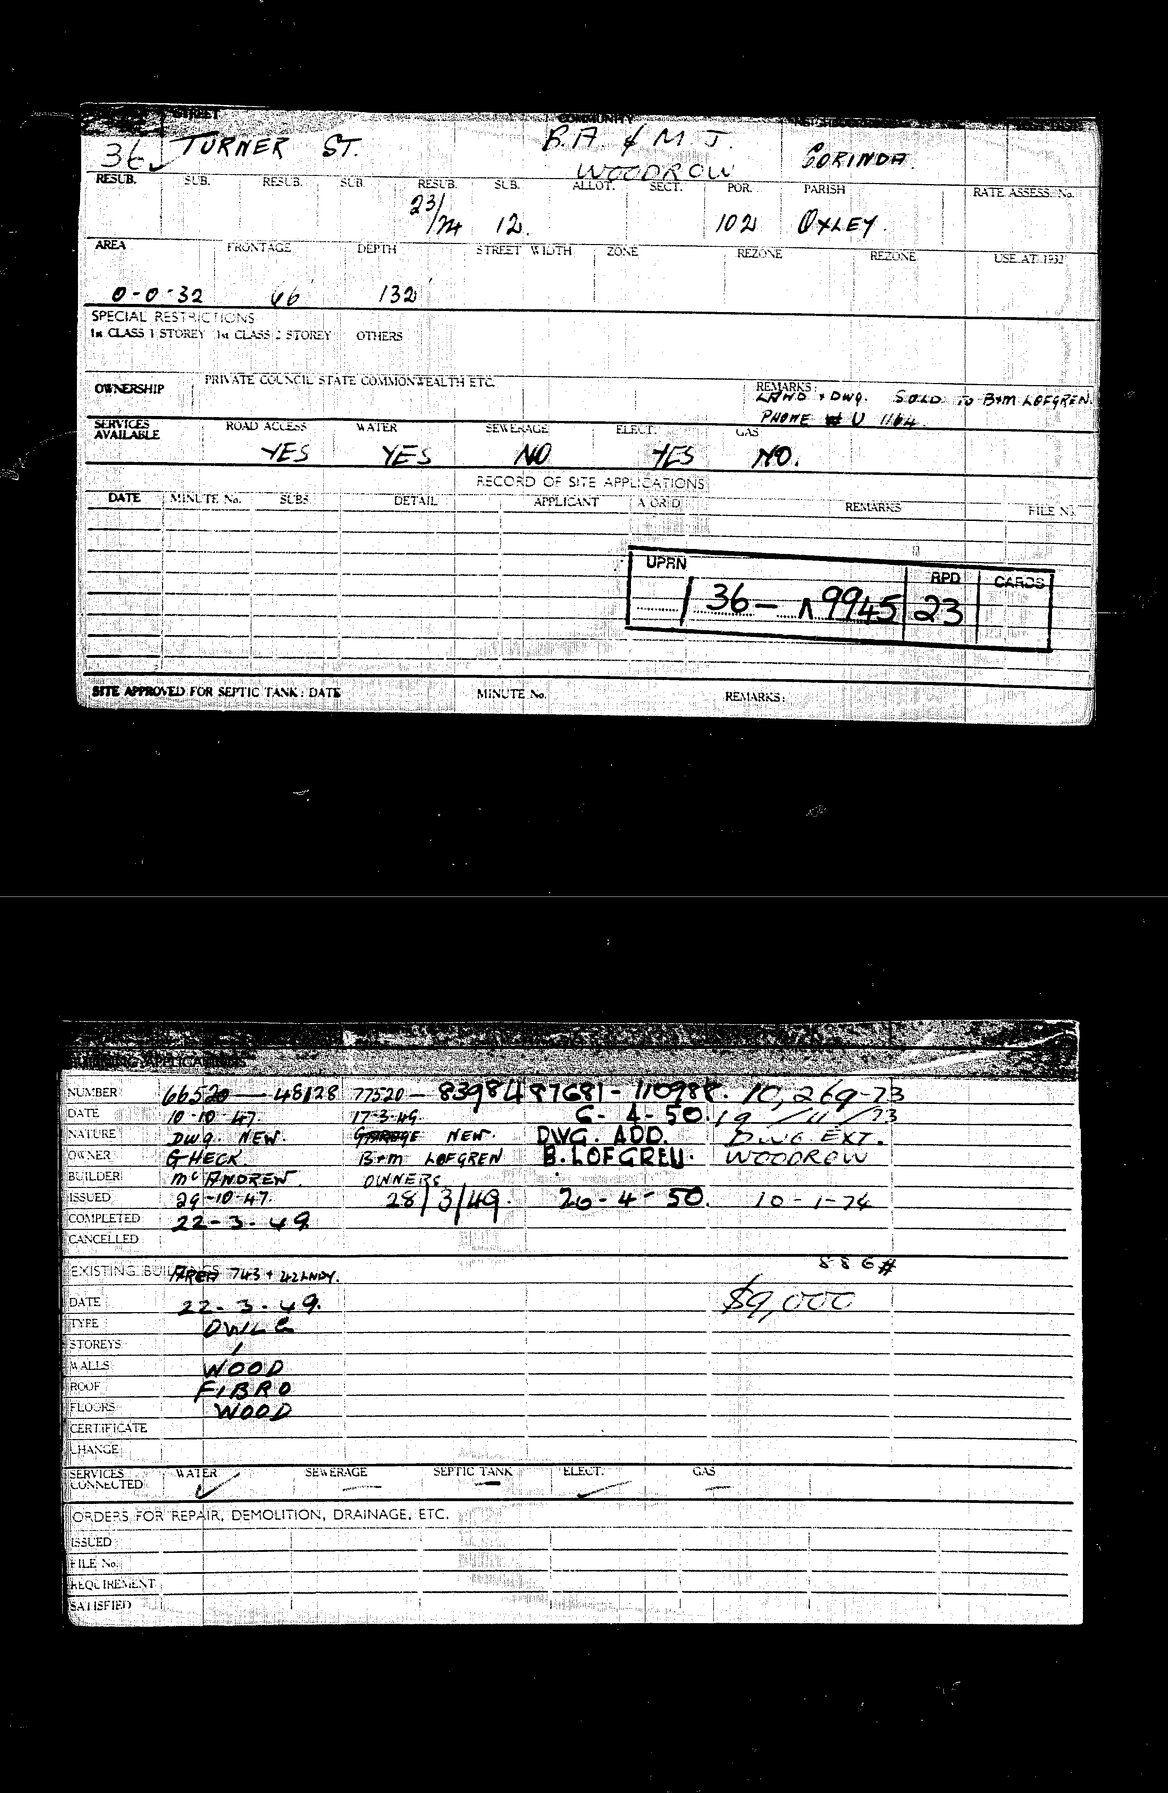 STREET COMMUNITY
36 TURNER ST. B.A. & M J. WOODROW CORINDA.
RESUB. SUB. RESUB. SUB. RESUB. SUB. ALLOT. SECT. POR. PARISH RATE ASSESS. No.
23/24 12. 102 OXLEY.
AREA FRONTAGE DEPTH STREET WIDTH ZONE REZONE REZONE USE AT 1932
0-0-32 66' 132'
SPECIAL RESTRICTIONS
1st CLASS 1 STOREY 1st CLASS 2 STOREY OTHERS
OWNERSHIP PRIVATE COUNCIL STATE COMMONWEALTH ETC. REMARKS:
LAND + DWG. SOLD TO B+M LOFGREN.
PHONE U 1164.
SERVICES AVAILABLE ROAD ACCESS WATER SEWERAGE ELECT. GAS
YES YES NO YES NO.
RECORD OF SITE APPLICATIONS
DATE MINUTE No. SUBS. DETAIL APPLICANT A OR D REMARKS FILE No.
UPRN RPD CARDS
/ 36 — 9945 23
SITE APPROVED FOR SEPTIC TANK: DATE MINUTE No. REMARKS:
BUILDING APPLICATIONS
NUMBER 66520 — 48128 77520 — 83984 87681 - 110988. 10,269-73
DATE 10-10-47 17-3-49. 6-4-50. 19/11/73
NATURE DWG. NEW. GARAGE NEW. DWG. ADD. DWG EXT.
OWNER G HECK. B+M LOFGREN B. LOFGREN. WOODROW
BUILDER McANDREW. OWNERS
ISSUED 29-10-47. 28/3/49. 26-4-50. 10-1-74
COMPLETED 22-3-49
CANCELLED
EXISTING BUILDINGS AREA 743 + 42 LNDY. 886#
DATE 22-3-49. $9,000
TYPE DWLG
STOREYS 1
WALLS WOOD
ROOF FIBRO
FLOORS WOOD
CERTIFICATE
CHANGE
SERVICES CONNECTED WATER ✓ SEWERAGE — SEPTIC TANK — ELECT. ✓ GAS —
ORDERS FOR REPAIR, DEMOLITION, DRAINAGE, ETC.
ISSUED
FILE No.
REQUIREMENT
SATISFIED